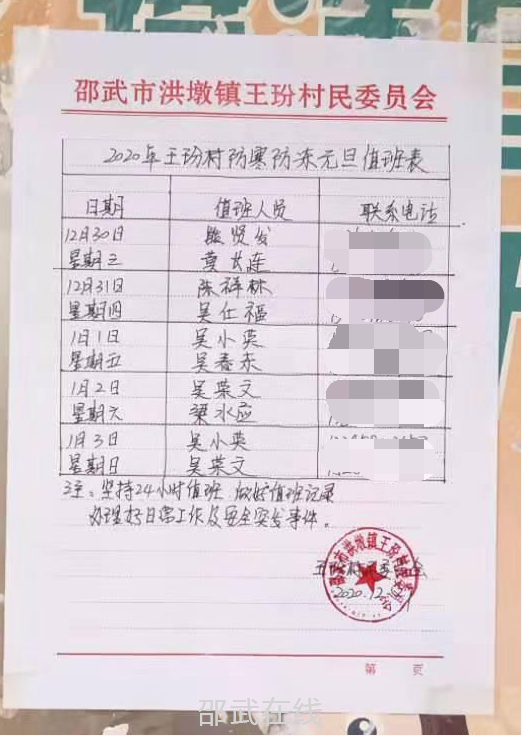 邵武市洪墩镇王玢村民委员会
2020年王玢村防寒防冻元旦值班表
日期 值班人员 联系电话
12月30日 贤发
星期三 黄长连
12月31日 陈祥林
星期四 吴仕福
1月1日 吴小英
星期五 吴春东
1月2日 吴荣文
星期六 梁水应
1月3日 吴小英
星期日 吴荣文
注：坚持24小时值班 做好值班记录
办理好日常工作及安全突发事件。
邵武市洪墩镇王玢村民委员会
2020.12
第 页
邵武在线